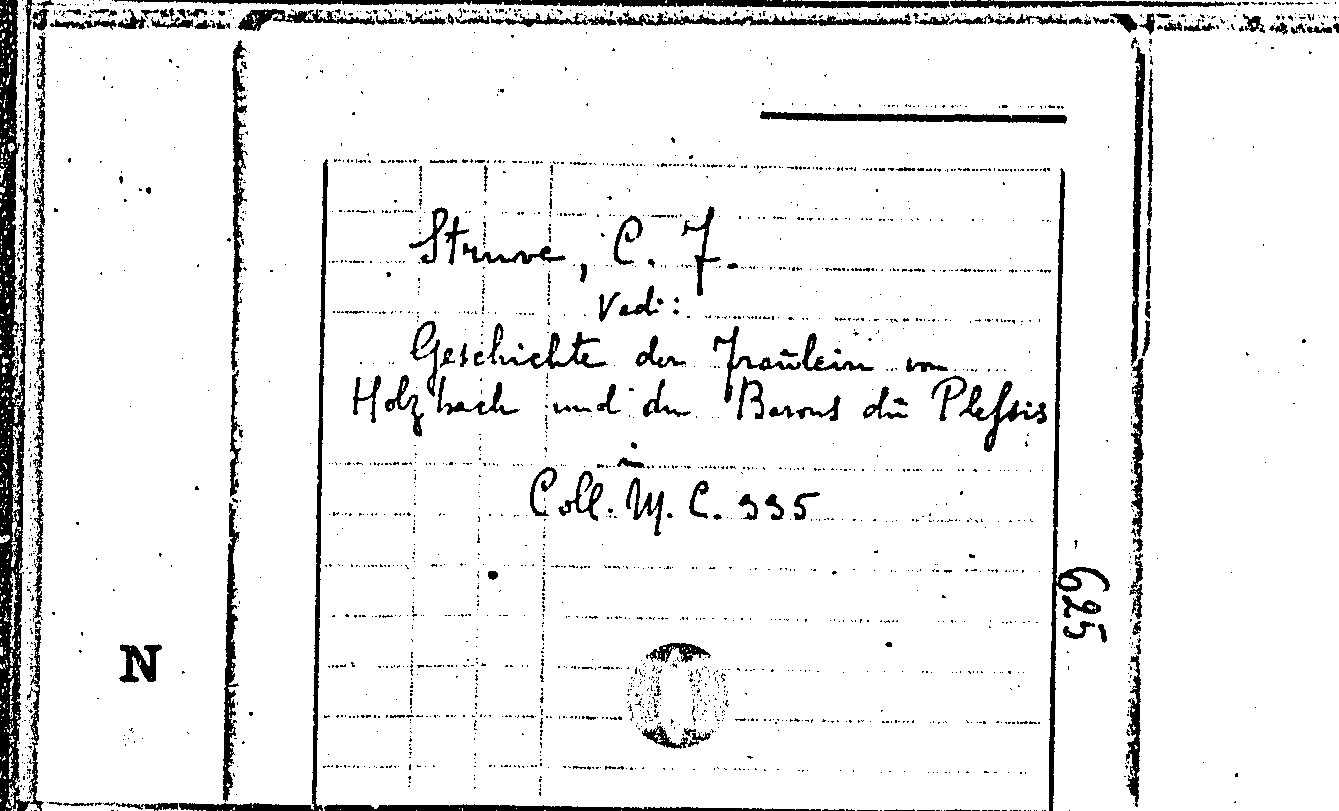 Struve, C. F.
Vedi:
Geschichte der Fraülein von
Holzbach und der Barons dü Plessis
in
Coll. M. C. 335
625
N